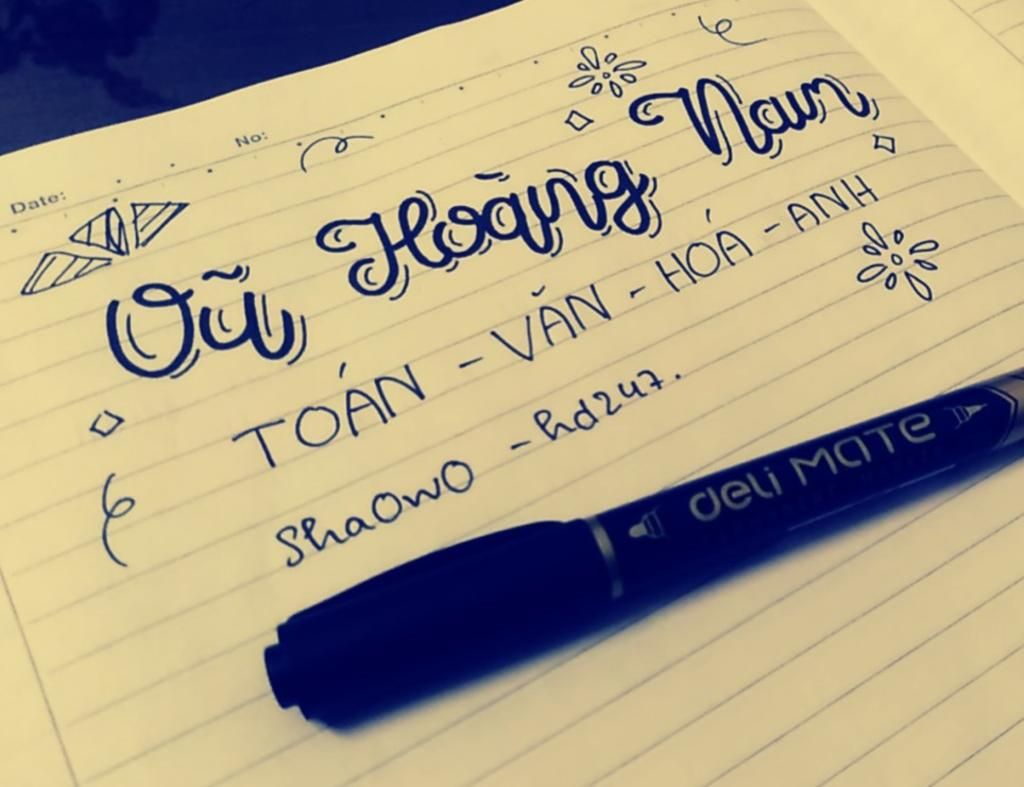 No:
Date:
Vũ Hoàng Nam
TOÁN - VĂN - HOÁ - ANH
ShaOwO - hd247.
deli MATE